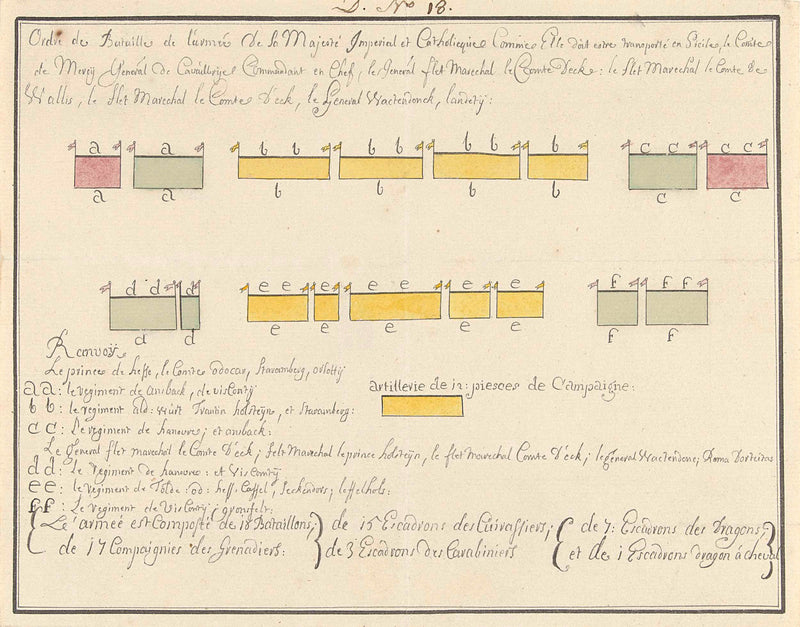 D. No 18.
Ordre de Bataille de l'armée de Sa Majesté Imperial et Catholicque Comme Elle doit estre transporté en Sicile, le Comte
de Mercij General de Cavallerije Commandant en Chef, le General flet Marechal le Comte Deck: le flet Marechal le Comte de
Wallis, le flet Marechal le Comte D'eck, le General Wactendonck, landerij:
a a b b b b b b b c c c c
a a b b b b c c
d d d e e e e e e f f f
d d e e e e e f f
Renvoÿ
Le prince de hesse, le Comte odocar, Staramberg, ottij
aa: le regiment de ansback, de viscontij
artillerie de 12: piesces de Campaigne:
bb: le regiment ald: wurt holsteijn, et Staramberg:
cc: Le regiment de hanovre; et ansback:
Le general flet marechal le Comte D'eck; felt Marechal le prince holsteijn, le flet marechal Comte D'eck; le general Wactendonc; Roma
dd: Le regiment de hanovre: et Viscontij
ee: le regiment de Tolde: od: hess-Cassel, Seckendors; leffelhols:
ff: Le regiment de Viscontij; gronsfelt:
Le armeé est Composté de 18 Bataillons; de 15 Escadrons des Cuirassiers; de 7: Escadrons des Dragons;
de 17 Compaignies des Grenadiers: de 3 Escadrons des Carabiniers et de 1 Escadrons dragon á cheval